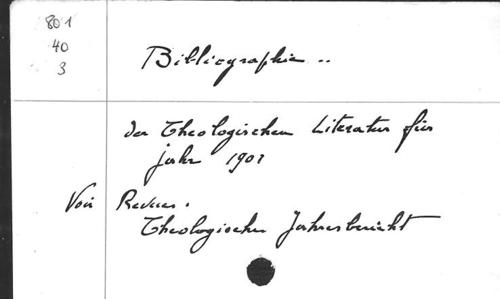 801
40
3
Bibliographie ..
der Theologischen Literatur für
jahr 1901
Voir Revues.
Theologischer Jahresbericht